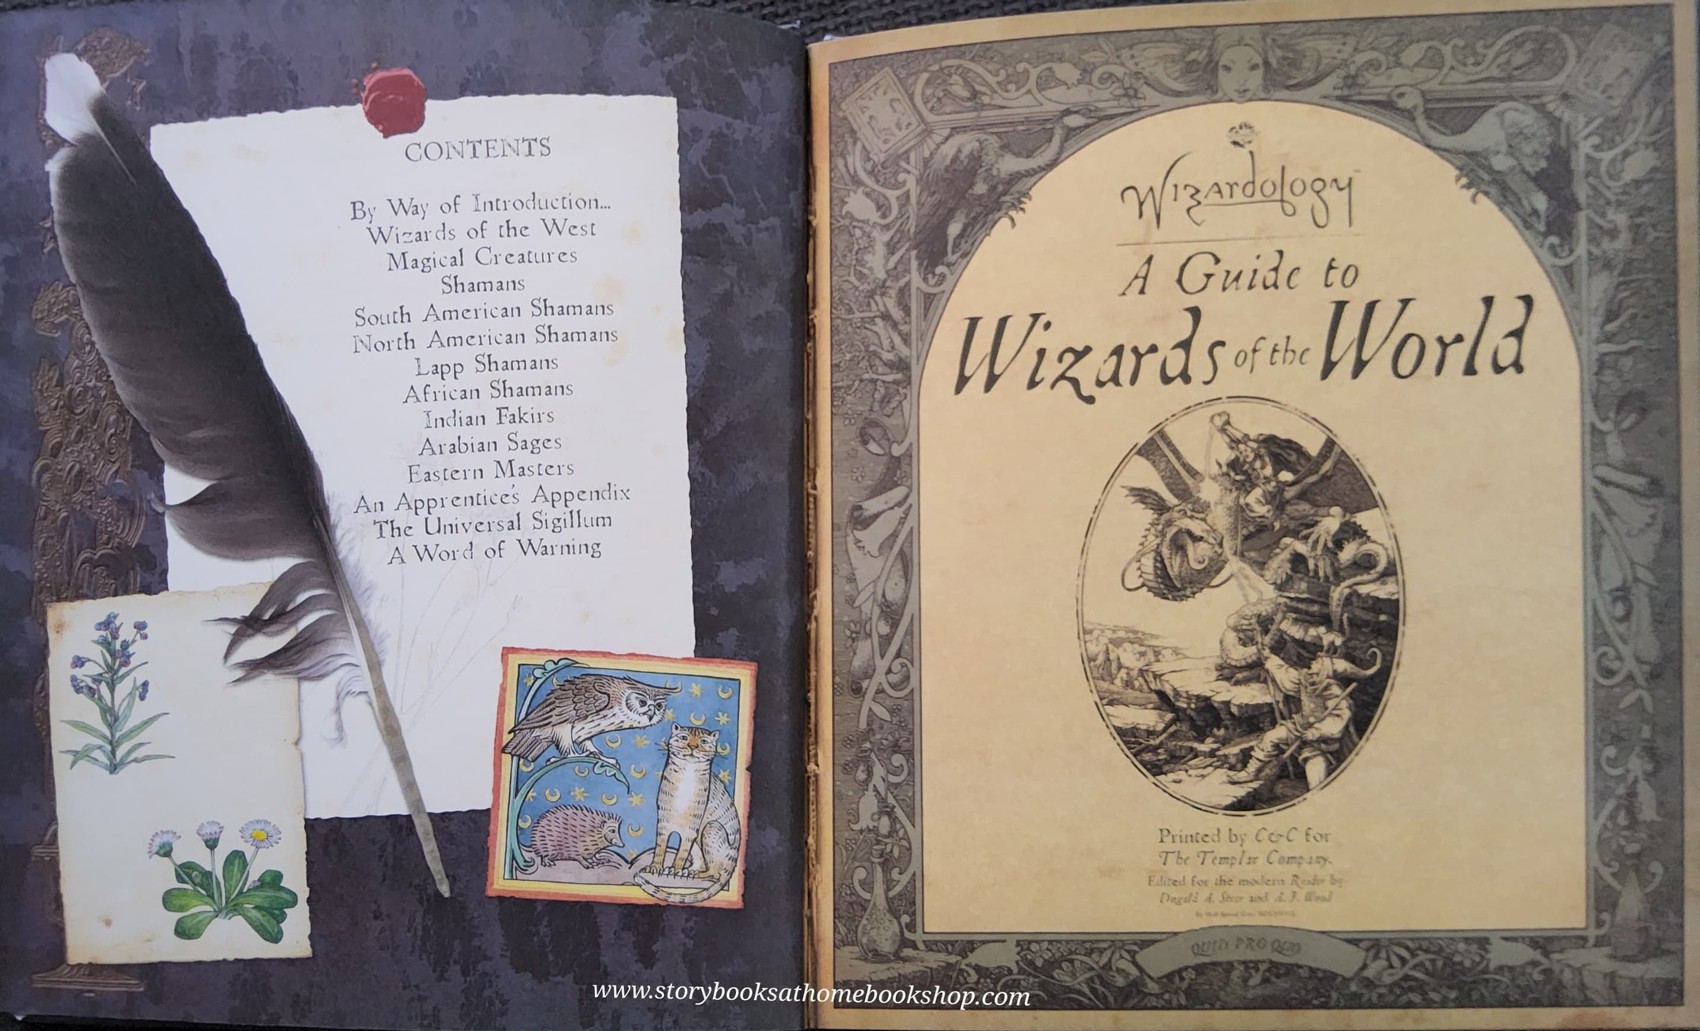 CONTENTS
By Way of Introduction...
Wizards of the West
Magical Creatures
Shamans
South American Shamans
North American Shamans
Lapp Shamans
African Shamans
Indian Fakirs
Arabian Sages
Eastern Masters
An Apprentice's Appendix
The Universal Sigillum
A Word of Warning
Wizardology
A Guide to
Wizards of the World
Printed by C&C for
The Templar Company.
Edited for the modern Reader by
Dugald A. Steer and
QUID PRO QUO
www.storybooksathomebookshop.com